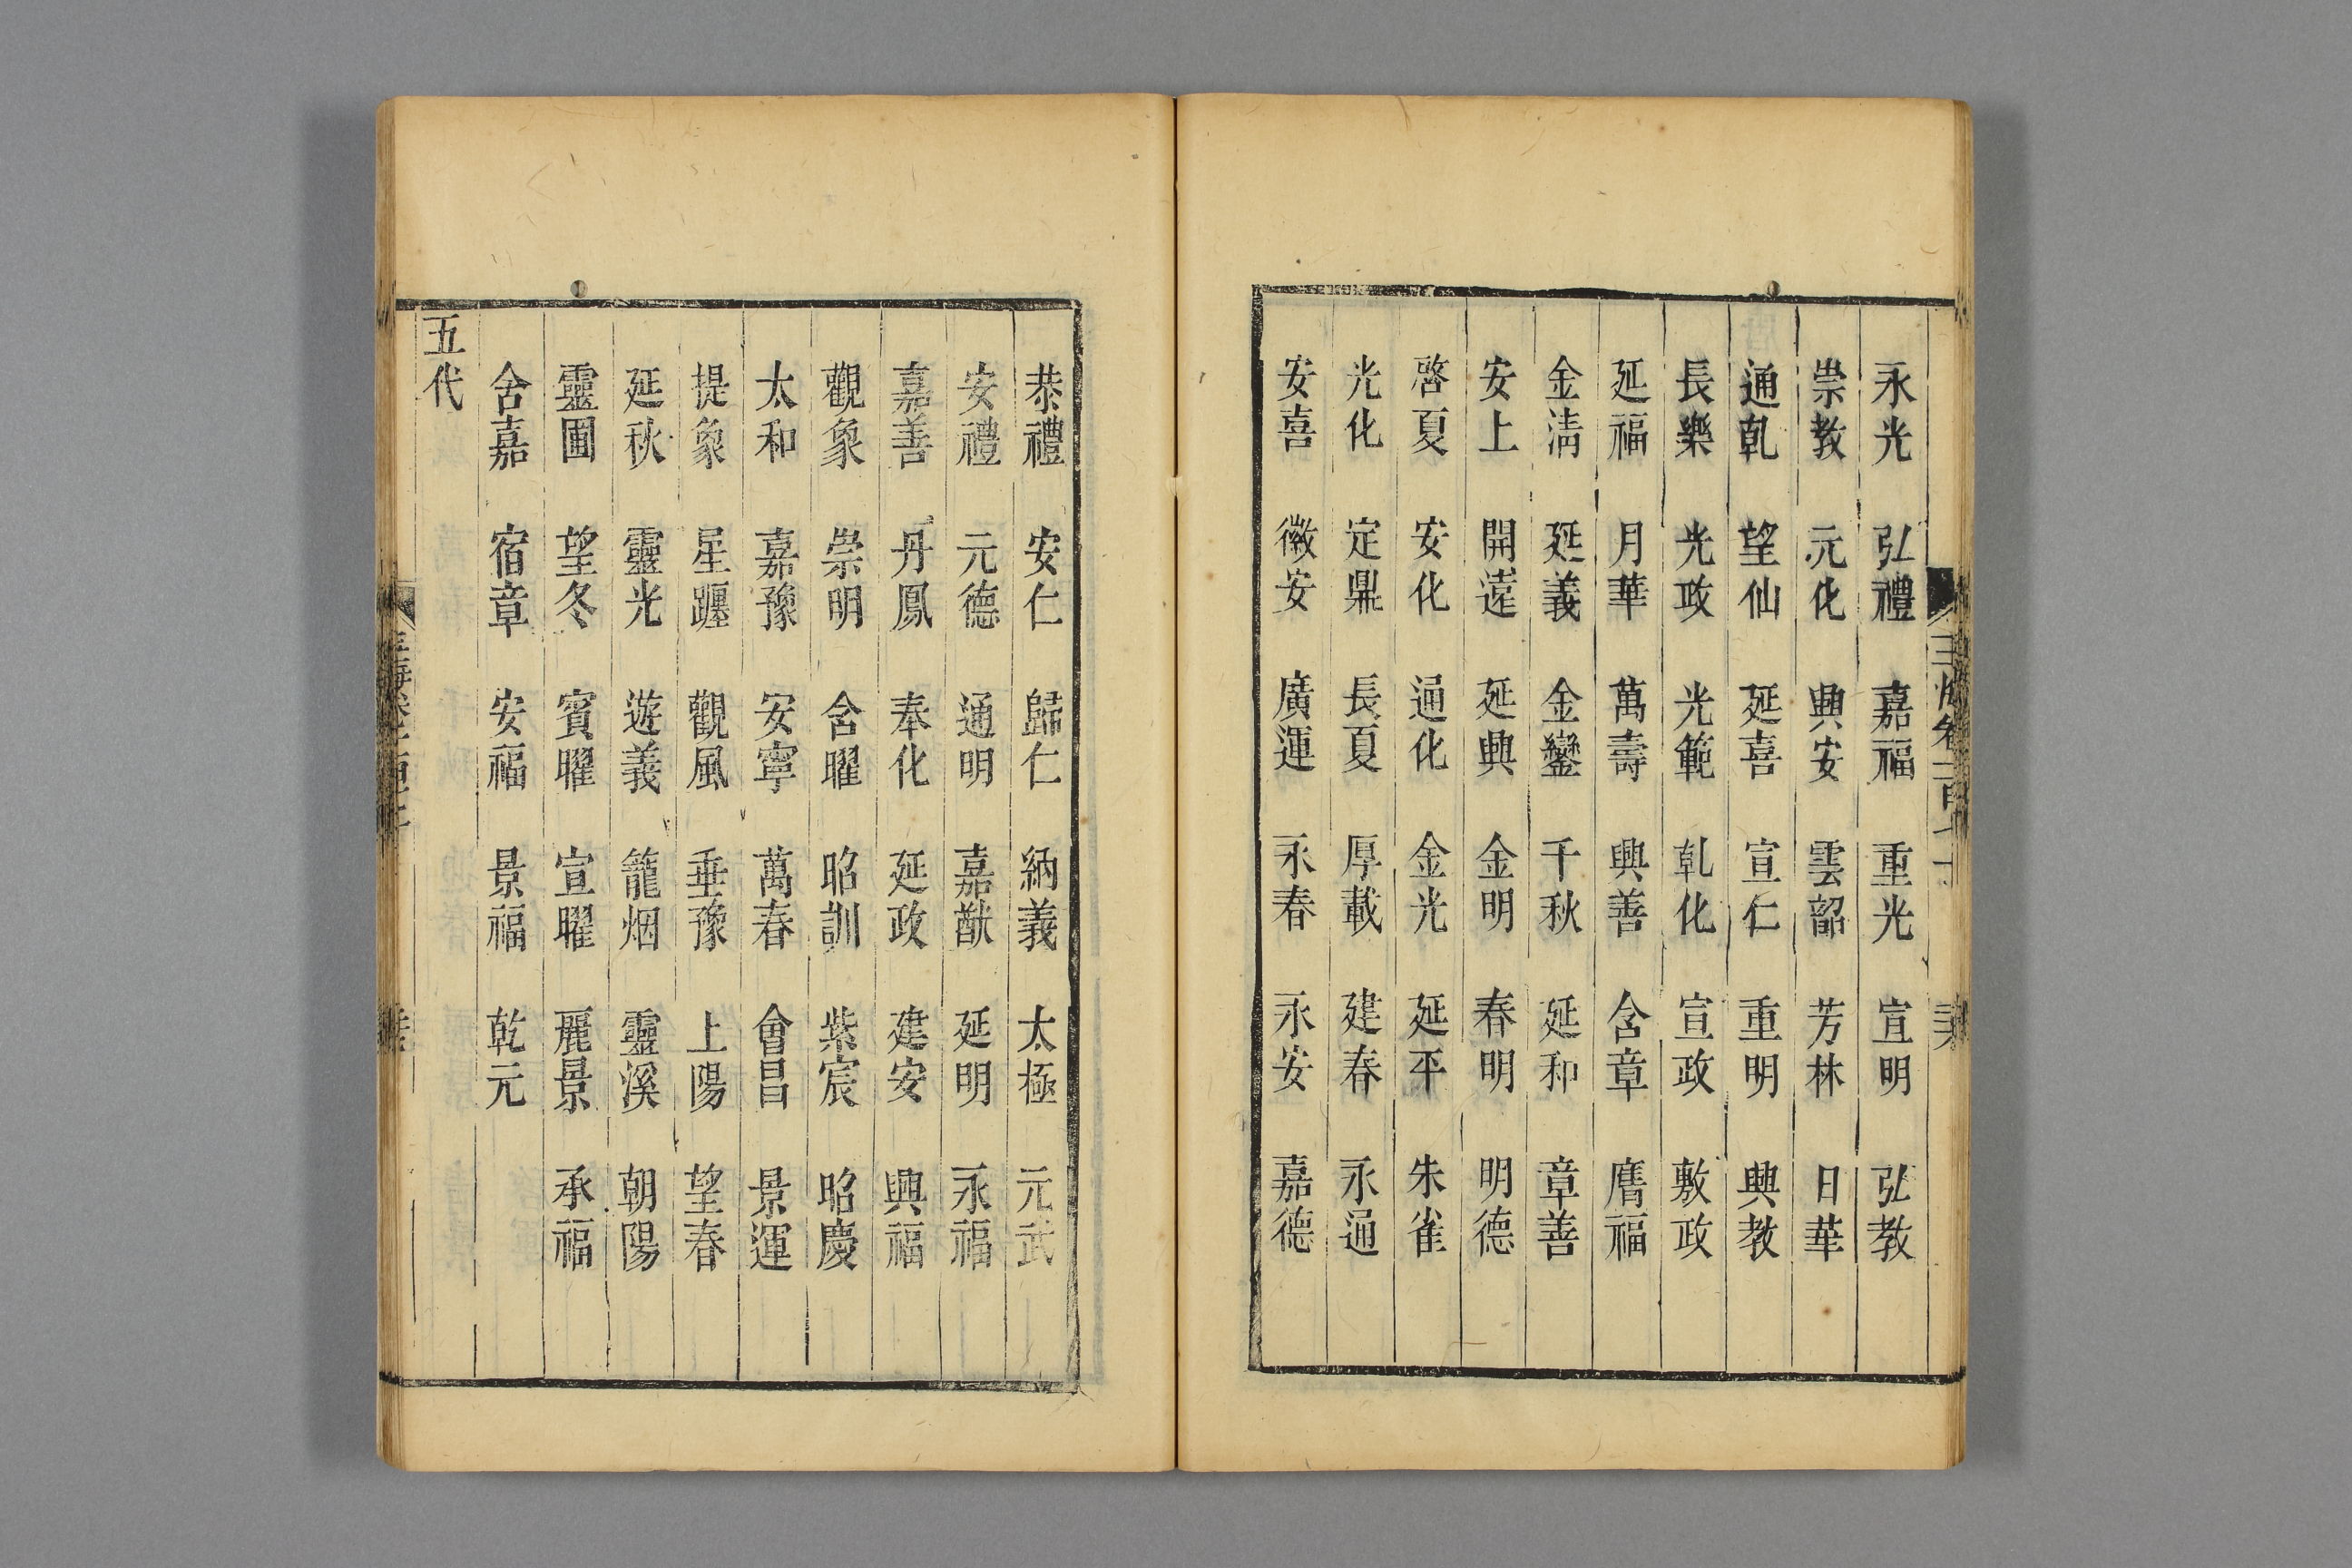 永光 弘禮 嘉福 重光 宣明 弘教
崇教 元化 興安 雲韶 芳林 日華
通乹 望仙 延喜 宣仁 重明 興教
長樂 光政 光範 乹化 宣政 敷政
延福 月華 萬壽 興善 含章 膺福
金淸 延義 金鑾 千秋 延和 章善
安上 開遠 延興 金明 春明 明德
啓夏 安化 通化 金光 延平 朱雀
光化 定鼎 長夏 厚載 建春 永通
安喜 徽安 廣運 永春 永安 嘉德
恭禮 安仁 歸仁 納義 太極 元武
安禮 元德 通明 嘉猷 延明 永福
嘉善 丹鳳 奉化 延政 建安 興福
觀象 崇明 含曜 昭訓 紫宸 昭慶
太和 嘉豫 安寧 萬春 會昌 景運
提象 星躔 觀風 垂豫 上陽 望春
延秋 靈光 遊義 籠烟 靈溪 朝陽
靈圃 望冬 賓曜 宣曜 麗景 承福
含嘉 宿章 安福 景福 乾元
五代